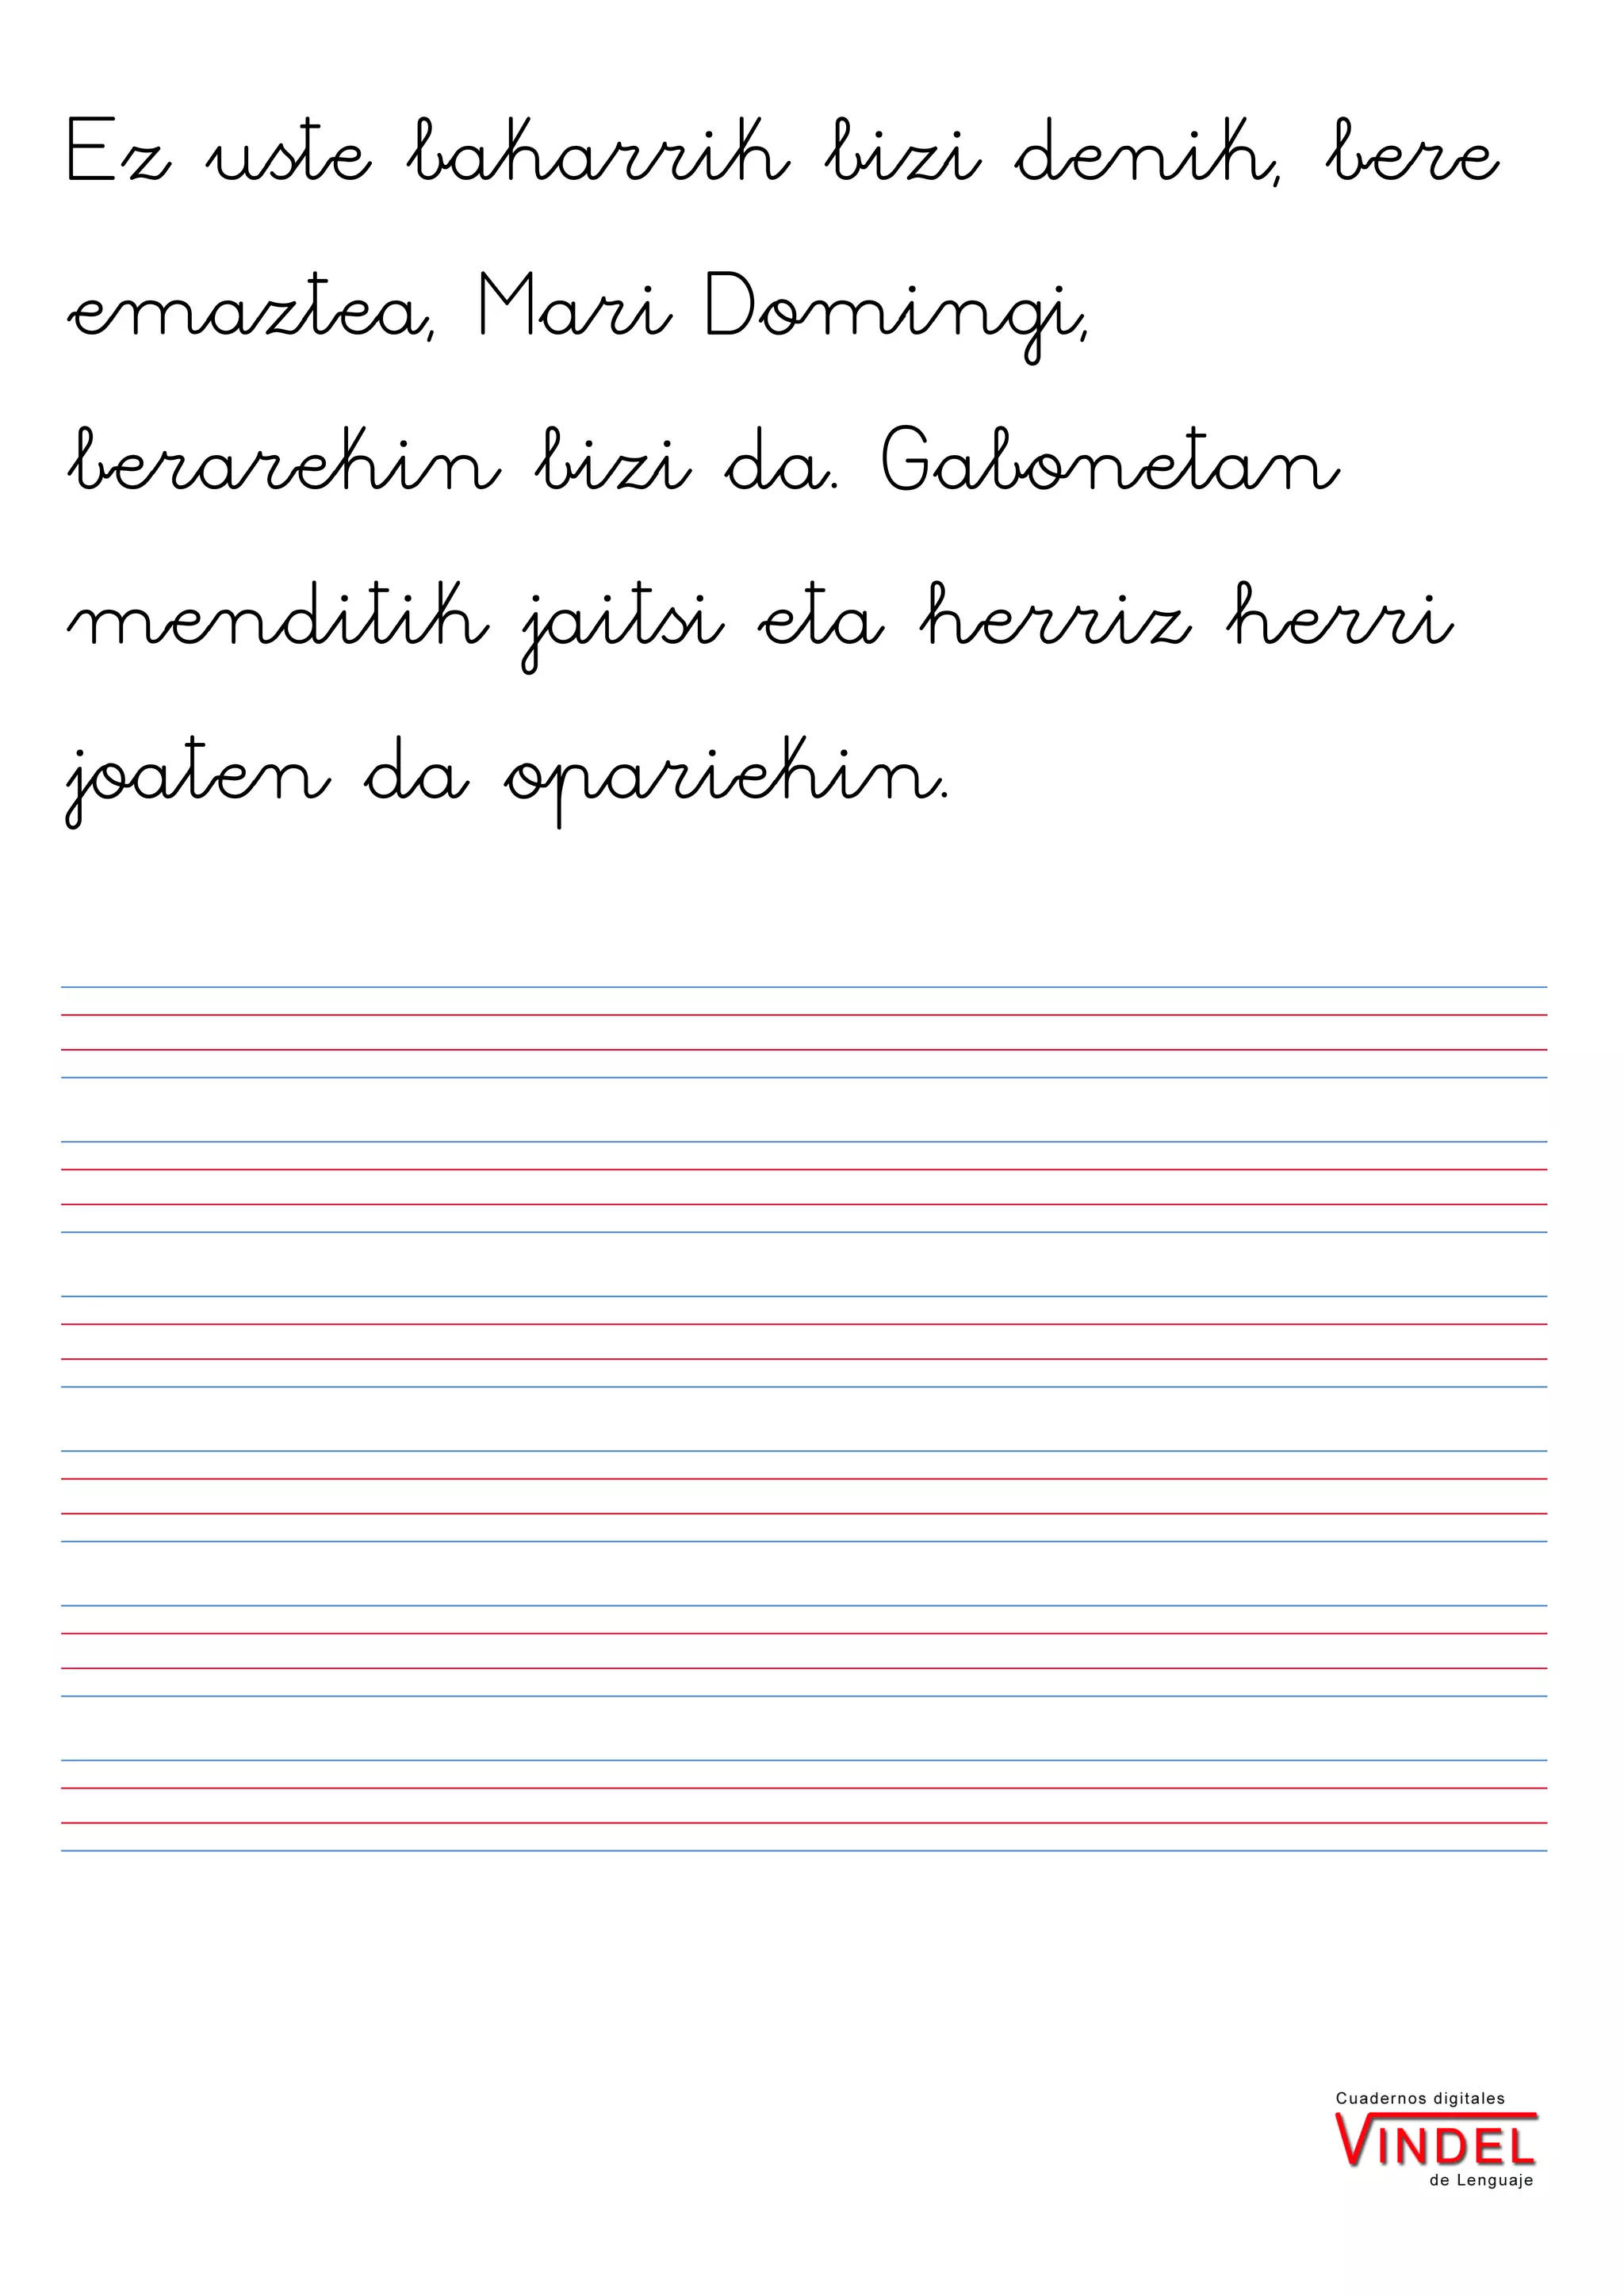 Ez uste bakarrik bizi denik, bere
emaztea, Mari Domingi,
berarekin bizi da. Gabonetan
menditik jaitsi eta herriz herri
joaten da opariekin.
Cuadernos digitales
VINDEL
de Lenguaje